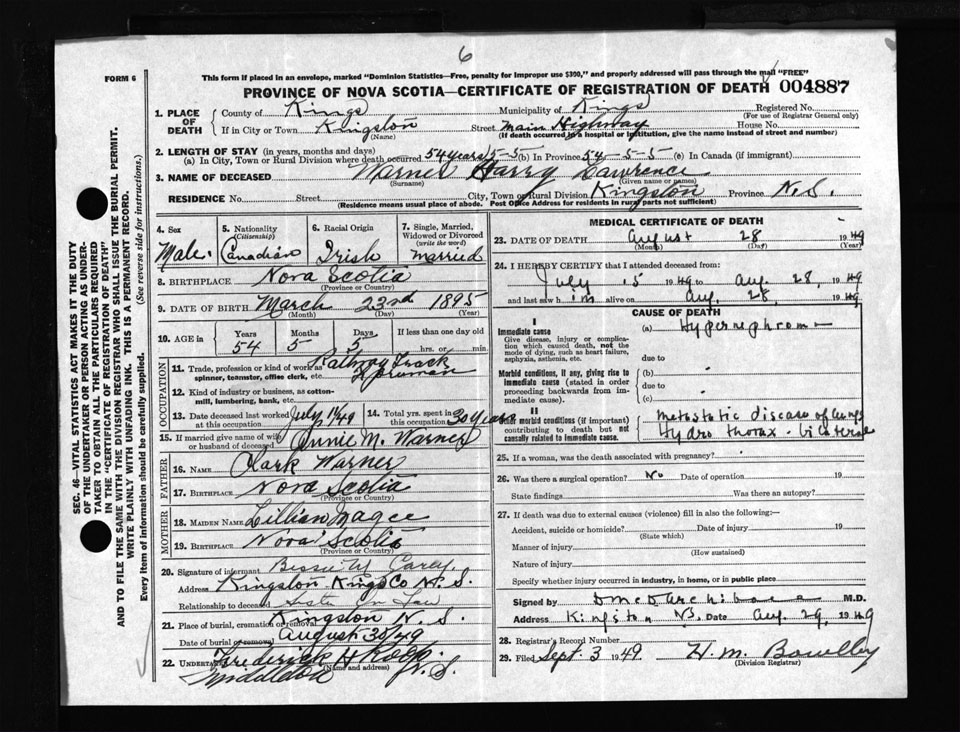 6
FORM 6
This form if placed in an envelope, marked "Dominion Statistics—Free, penalty for improper use $300," and properly addressed will pass through the mail "FREE"
PROVINCE OF NOVA SCOTIA—CERTIFICATE OF REGISTRATION OF DEATH 004887
1. PLACE OF DEATH
County of Kings Municipality of Kings Registered No.
(For use of Registrar General only)
If in City or Town Kingston Street Main Highway House No.
(Name) (If death occurred in a hospital or institution, give the name instead of street and number)
2. LENGTH OF STAY (in years, months and days)
(a) In City, Town or Rural Division where death occurred 54 years 5-5 (b) In Province 54-5-5 (c) In Canada (if immigrant)
3. NAME OF DECEASED Warner Harry Lawrence
(Surname) (Given name or names)
RESIDENCE No. Street City, Town or Rural Division Kingston Province N.S.
(Residence means usual place of abode. Post Office Address for residents in rural parts not sufficient)
4. Sex Male.
5. Nationality (Citizenship) Canadian
6. Racial Origin Irish
7. Single, Married, Widowed or Divorced (write the word) Married
8. BIRTHPLACE Nova Scotia
(Province or Country)
9. DATE OF BIRTH March 23rd 1895
(Month) (Day) (Year)
10. AGE in Years Months Days If less than one day old
54 5 5 hrs. or min.
OCCUPATION
11. Trade, profession or kind of work as Railway Track
spinner, teamster, office clerk, etc.
12. Kind of industry or business, as cotton-
mill, lumbering, bank, etc.
13. Date deceased last worked at this occupation July 1/49
14. Total yrs. spent in this occupation 30 Years
15. If married give name of wife or husband of deceased Annie M. Warner
FATHER
16. NAME Clark Warner
17. BIRTHPLACE Nova Scotia
(Province or Country)
MOTHER
18. MAIDEN NAME Lillian Magee
19. BIRTHPLACE Nova Scotia
(Province or Country)
20. Signature of informant Bessie M Carey
Address Kingston Kings Co N.S.
Relationship to deceased Sister in Law
21. Place of burial, cremation or removal Kingston N.S.
Date of burial or removal August 30/49
22. UNDERTAKER Frederick H
(Name and address)
Middleton N.S.
MEDICAL CERTIFICATE OF DEATH
23. DATE OF DEATH August 28 1949
(Month) (Day) (Year)
24. I HEREBY CERTIFY that I attended deceased from:
July 15 1949 to Aug. 28, 1949
and last saw him alive on Aug. 28, 1949.
CAUSE OF DEATH
I
Immediate cause (a) Hypernephroma
Give disease, injury or complication which caused death, not the mode of dying, such as heart failure, asphyxia, asthenia, etc.
due to
Morbid conditions, if any, giving rise to immediate cause (stated in order proceeding backwards from immediate cause).
(b)
due to
(c)
II
Other morbid conditions (if important) contributing to death but not causally related to immediate cause.
Metastatic disease of lungs
Hydro thorax - bilateral
25. If a woman, was the death associated with pregnancy?
26. Was there a surgical operation? No Date of operation 19
State findings Was there an autopsy?
27. If death was due to external causes (violence) fill in also the following:—
Accident, suicide or homicide? Date of injury 19
(State which)
Manner of injury
(How sustained)
Nature of injury
Specify whether injury occurred in industry, in home, or in public place
Signed by M.D.
Address Kingston N.S. Date Aug. 29, 1949
28. Registrar's Record Number
29. Filed Sept. 3 1949. H. M. Bowlby
(Division Registrar)
SEC. 46—VITAL STATISTICS ACT MAKES IT THE DUTY
OF THE UNDERTAKER OR PERSON ACTING AS UNDER-
TAKER TO OBTAIN ALL THE PARTICULARS REQUIRED
IN THE "CERTIFICATE OF REGISTRATION OF DEATH"
AND TO FILE THE SAME WITH THE DIVISION REGISTRAR WHO SHALL ISSUE THE BURIAL PERMIT.
WRITE PLAINLY WITH UNFADING INK. THIS IS A PERMANENT RECORD.
Every item of information should be carefully supplied. (See reverse side for instructions.)